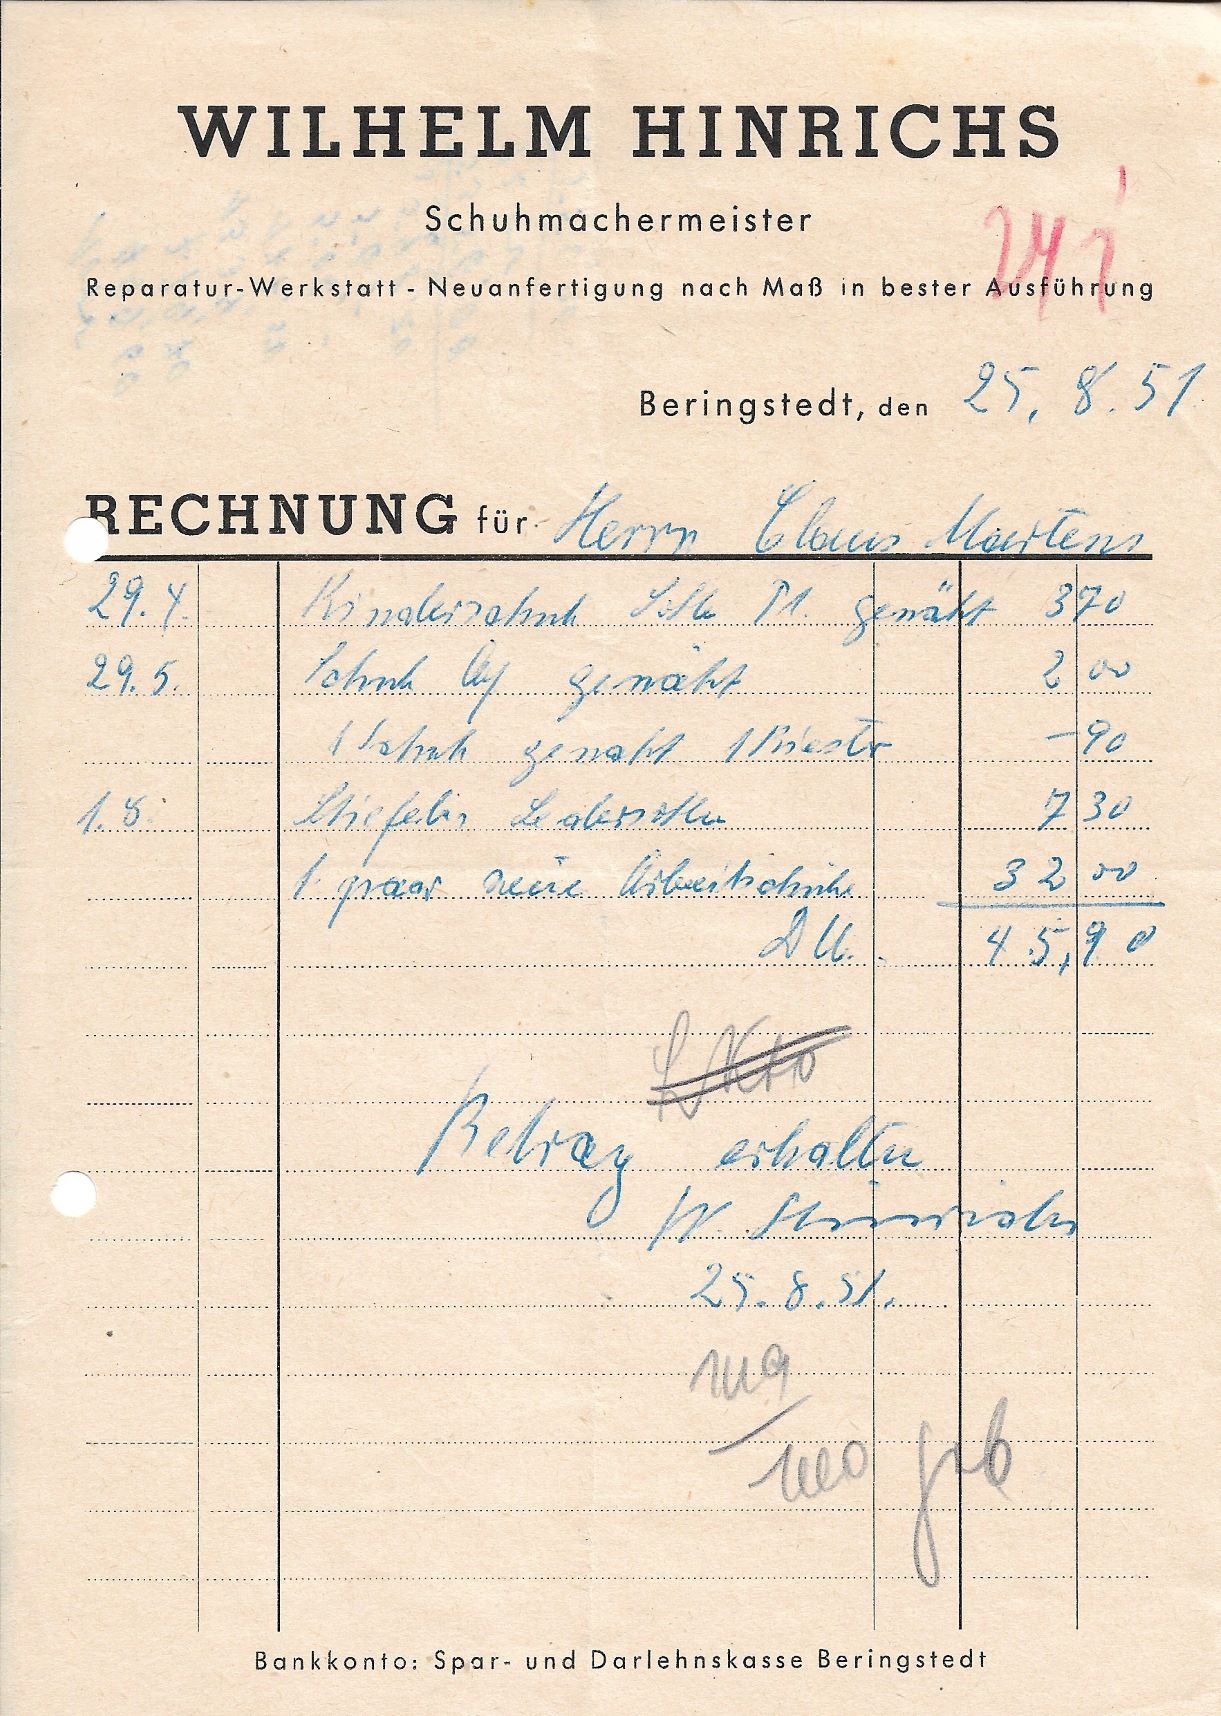 WILHELM HINRICHS
Schuhmachermeister
241
Reparatur-Werkstatt - Neuanfertigung nach Maß in bester Ausführung
Beringstedt, den 25. 8. 51
RECHNUNG für Herrn Claus Martens
29.4. Kinderschuh genäht 3 70
29.5. Schuh genäht 2 00
1 Schuh genäht 1 Riester - 90
1.8. Stiefel Ledersohlen 7 30
1 paar neue Arbeitschuhe 32 00
DM. 45,90
Betrag erhalten
W. Hinrichs
25.8.51.
Bankkonto: Spar- und Darlehnskasse Beringstedt